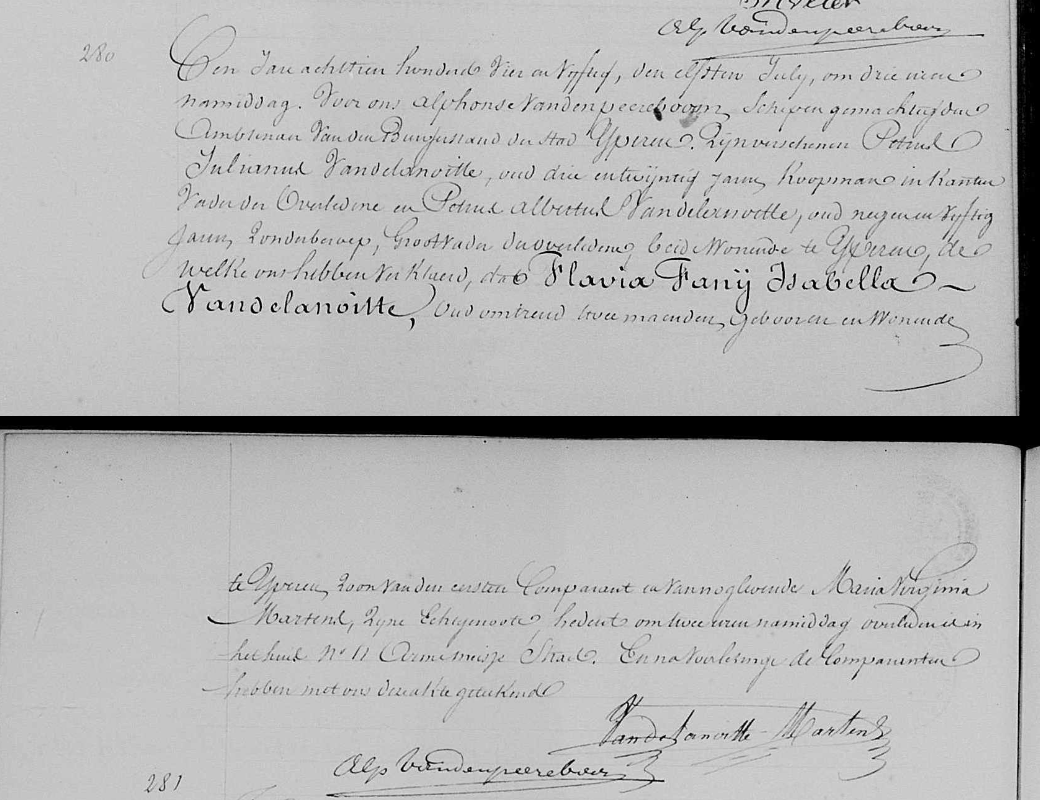 Alp Vandenpeereboom
280
Een Jaer achttien honderd Vier en Vyftig, den elfsten July, om drie uren
namiddag. Voor ons Alphonse Vandenpeereboom, Schepen gemachtigden
Ambtenaer Van den Burgerstand der stad Yperen. Zyn verschenen Petrus
Julianus Vandelanoitte, oud drie en twyntig Jaren, Koopman in Kanten
Vader der Overledene en Petrus Albertus Vandelanoitte, oud negen en Vyftig
Jaren, Zonder beroep, Grootvader der overledene, beide Wonende te Yperen, de
welke ons hebben Verklaerd, dat Flavia Fanÿ Isabella
Vandelanoitte, Oud omtrend twee maenden, Gebooren en Wonende
te Yperen, Zoon van den eersten Comparant en van nog levende Maria Virginia
Martens, Zyne Echtgenoote, heden om twee uren namiddag overleden is in
het huis N° 11 Straet. En na Voorlezing de Comparanten
hebben met ons deze akte geteekend
Vandelanoitte-Martens
Alp Vandenpeereboom
281